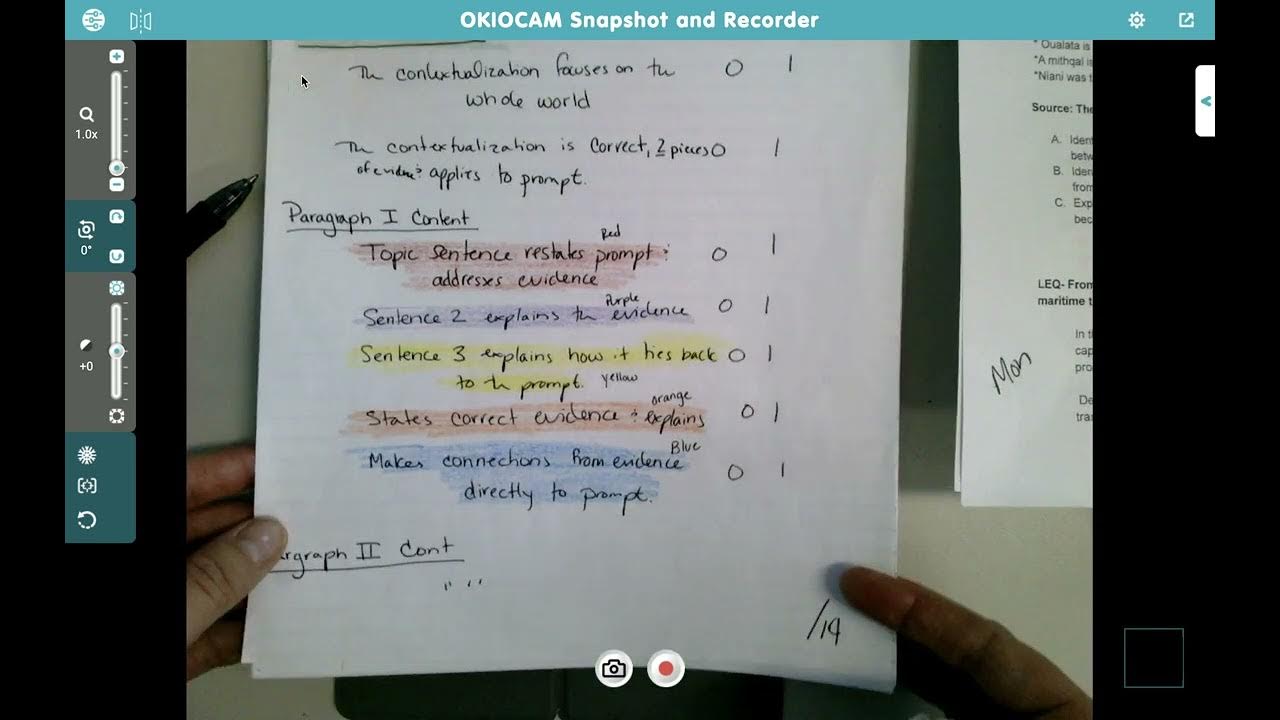 OKIOCAM Snapshot and Recorder
1.0x
0°
+0
The contextualization focuses on the 0 1
whole world
The contextualization is correct, 2 pieces 0 1
of evidence applies to prompt.
Paragraph I Content
Red
Topic sentence restates prompt & 0 1
addresses evidence
Purple
Sentence 2 explains the evidence 0 1
Sentence 3 explains how it ties back 0 1
to the prompt. yellow
orange
States correct evidence & explains 0 1
Blue
Makes connections from evidence 0 1
directly to prompt.
argraph II Cont
" "
/19
* Oualata is
*A mithqal is
*Niani was t
Source: The
A. Iden
betw
B. Iden
from
C. Exp
bec
LEQ- From
maritime t
In t
cap
pro
Mon
De
tra